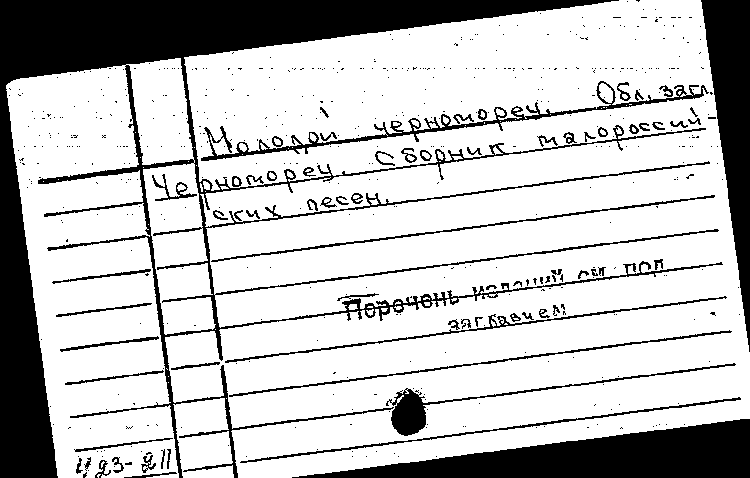 Молодой черноморец. Обл. загл.
Черноморец. Сборник малороссий-
ских песен.
Перечень изданий см под
заглавием
Ч 23-211